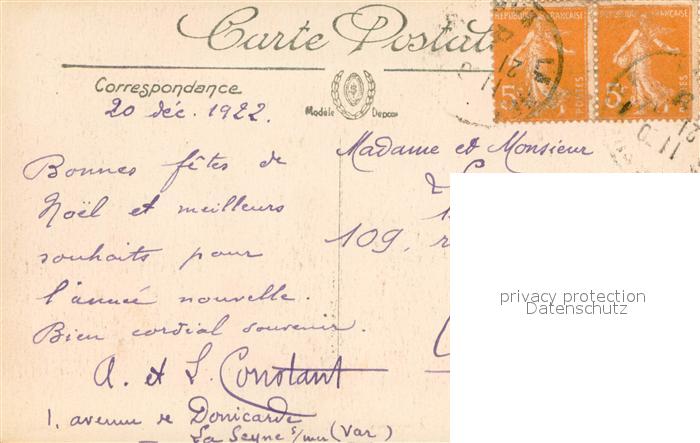 Carte Postale
Correspondance
20 déc. 1922.
Modèle Déposé
RÉPUBLIQUE FRANÇAISE
5c
POSTES
RÉPUBLIQUE FRANÇAISE
5c
POSTES
LA
Madame et Monsieur
109, r
Bonnes fêtes de
Noël et meilleurs
souhaits pour
l'année nouvelle.
Bien cordial souvenir.
A. et L. Constant
1, avenue de
La Seyne s/mer (Var)
privacy protection
Datenschutz